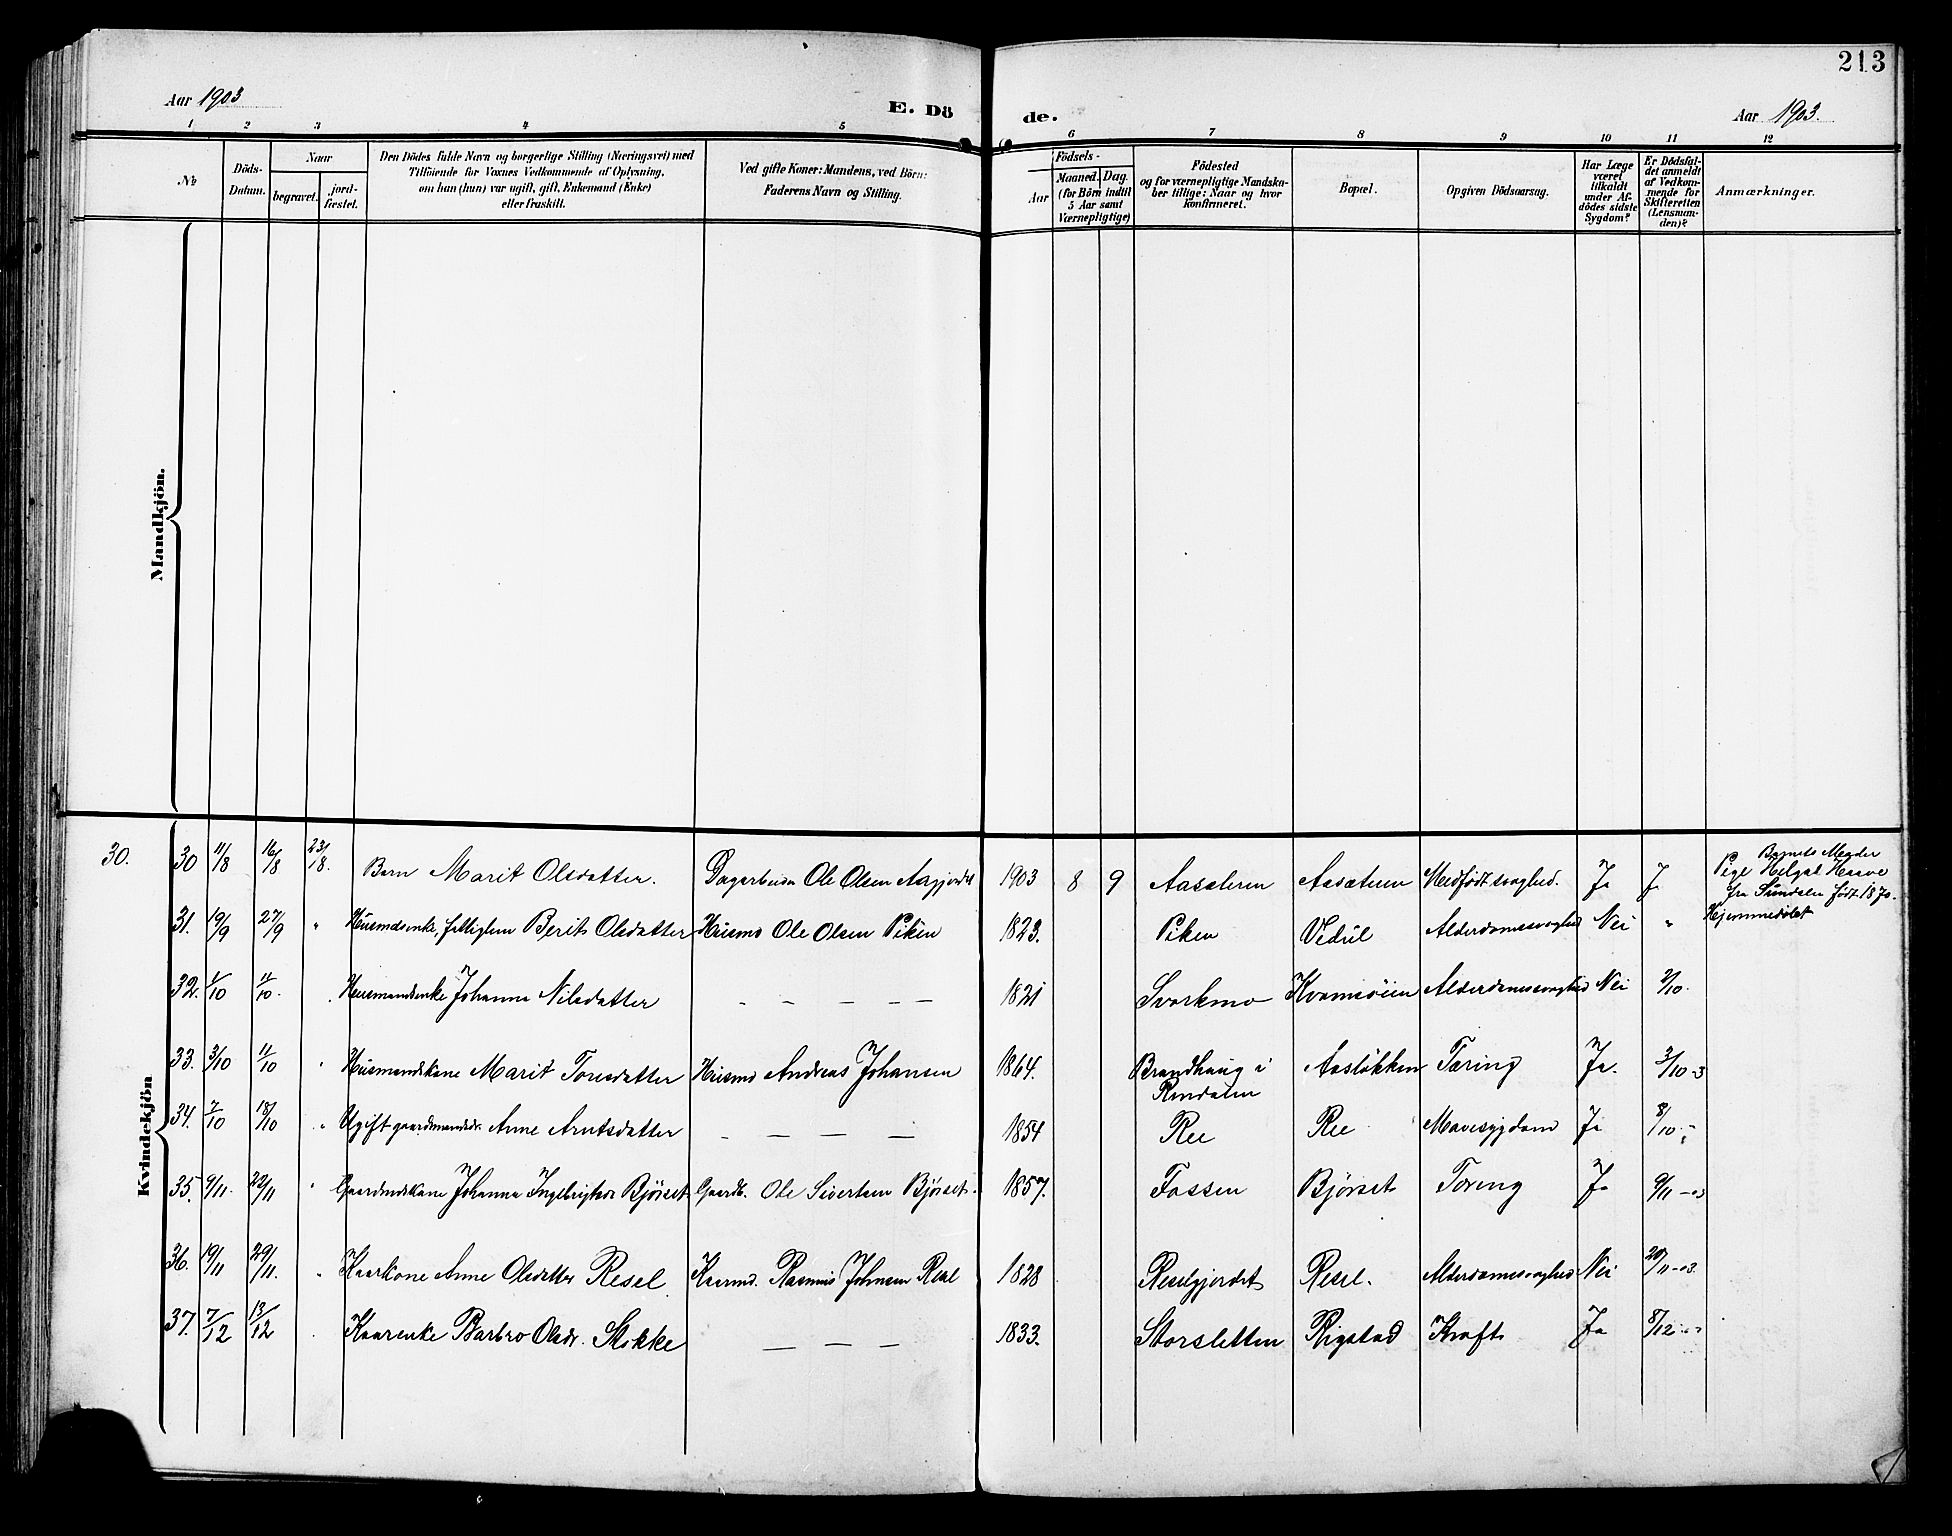 213
Aar 1903
E. Dö
de.
Aar 1903.
1 2 3 4 5 6 7 8 9 10 11 12
№
Döds-Datum.
Naar
begravet.
jord-fæstet.
Den Dödes fulde Navn og borgerlige Stilling (Næringsvei) med
Tilföiende for Voxnes Vedkommende af Oplysning,
om han (hun) var ugift, gift, Enkemand (Enke)
eller fraskilt.
Ved gifte Koner: Mandens, ved Börn:
Faderens Navn og Stilling.
Födsels-
Aar
Maaned. Dag.
(for Börn indtil
5 Aar samt
Værnepligtige)
Födested
og for værnepligtige Mandska-
ber tillige: Naar og hvor
konfirmeret.
Bopæl.
Opgiven Dödsaarsag.
Har Læge
været
tilkaldt
under Af-
dödes sidste
Sygdom?
Er Dödsfal-
det anmeldt
af Vedkom-
mende for
Skifteretten
(Lensman-
den)?
Anmærkninger.
Mandkjön.
Kvindekjön
30. 30 11/8 16/8 23/8. Barn Marit Olsdatter. Ole Olsen 1903 8 9 Aasæteren Aasæteren Medfödt svaghed. Ja J
Barnets Moder
Pige Helga
fra Sundalen födt 1870.
Hjemmedöbt
31. 19/9 27/9 " Berit Olsdatter Husmd Ole Olsen Piken 1823. Piken Alderdomssvaghed Nei "
32. 1/10 11/10. Husmandsenke Johanna Nilsdatter — — — — — 1821 Svorkmo Kvamsöien Alderdomssvaghed Nei 2/10.
33. 3/10 11/10 " Husmandskone Marit Toresdatter Husmd Andreas Johansen 1864. Brandhaug i Rindalen Aaslökken Tæring Ja. 3/10-3
34. 7/10 18/10 " Ugift gaardmandsdr. Anne Arntsdatter — — — — 1854 Ree Ree Mavesygdom Ja 8/10-
35. 9/11. 22/11 " Gaardmdskone Johanna Ingebrigtsdr Björset Gaardb. Ole Sivertsen Björset. 1857. Fossen Björset Tæring Ja 9/11-03
36. 19/11 29/11. " Kaarkone Anne Olsdatter Resel Kaarmd. Rasmus Johnsen Resel 1828 Reselgjerdet Resel. Alderdomssvaghed Nei 20/11-03.
37. 7/12 13/12 Kaarenke Barbro Olsdr. Stokke — — — 1833. Storsletten Rigstad Kræft Ja 8/12-03